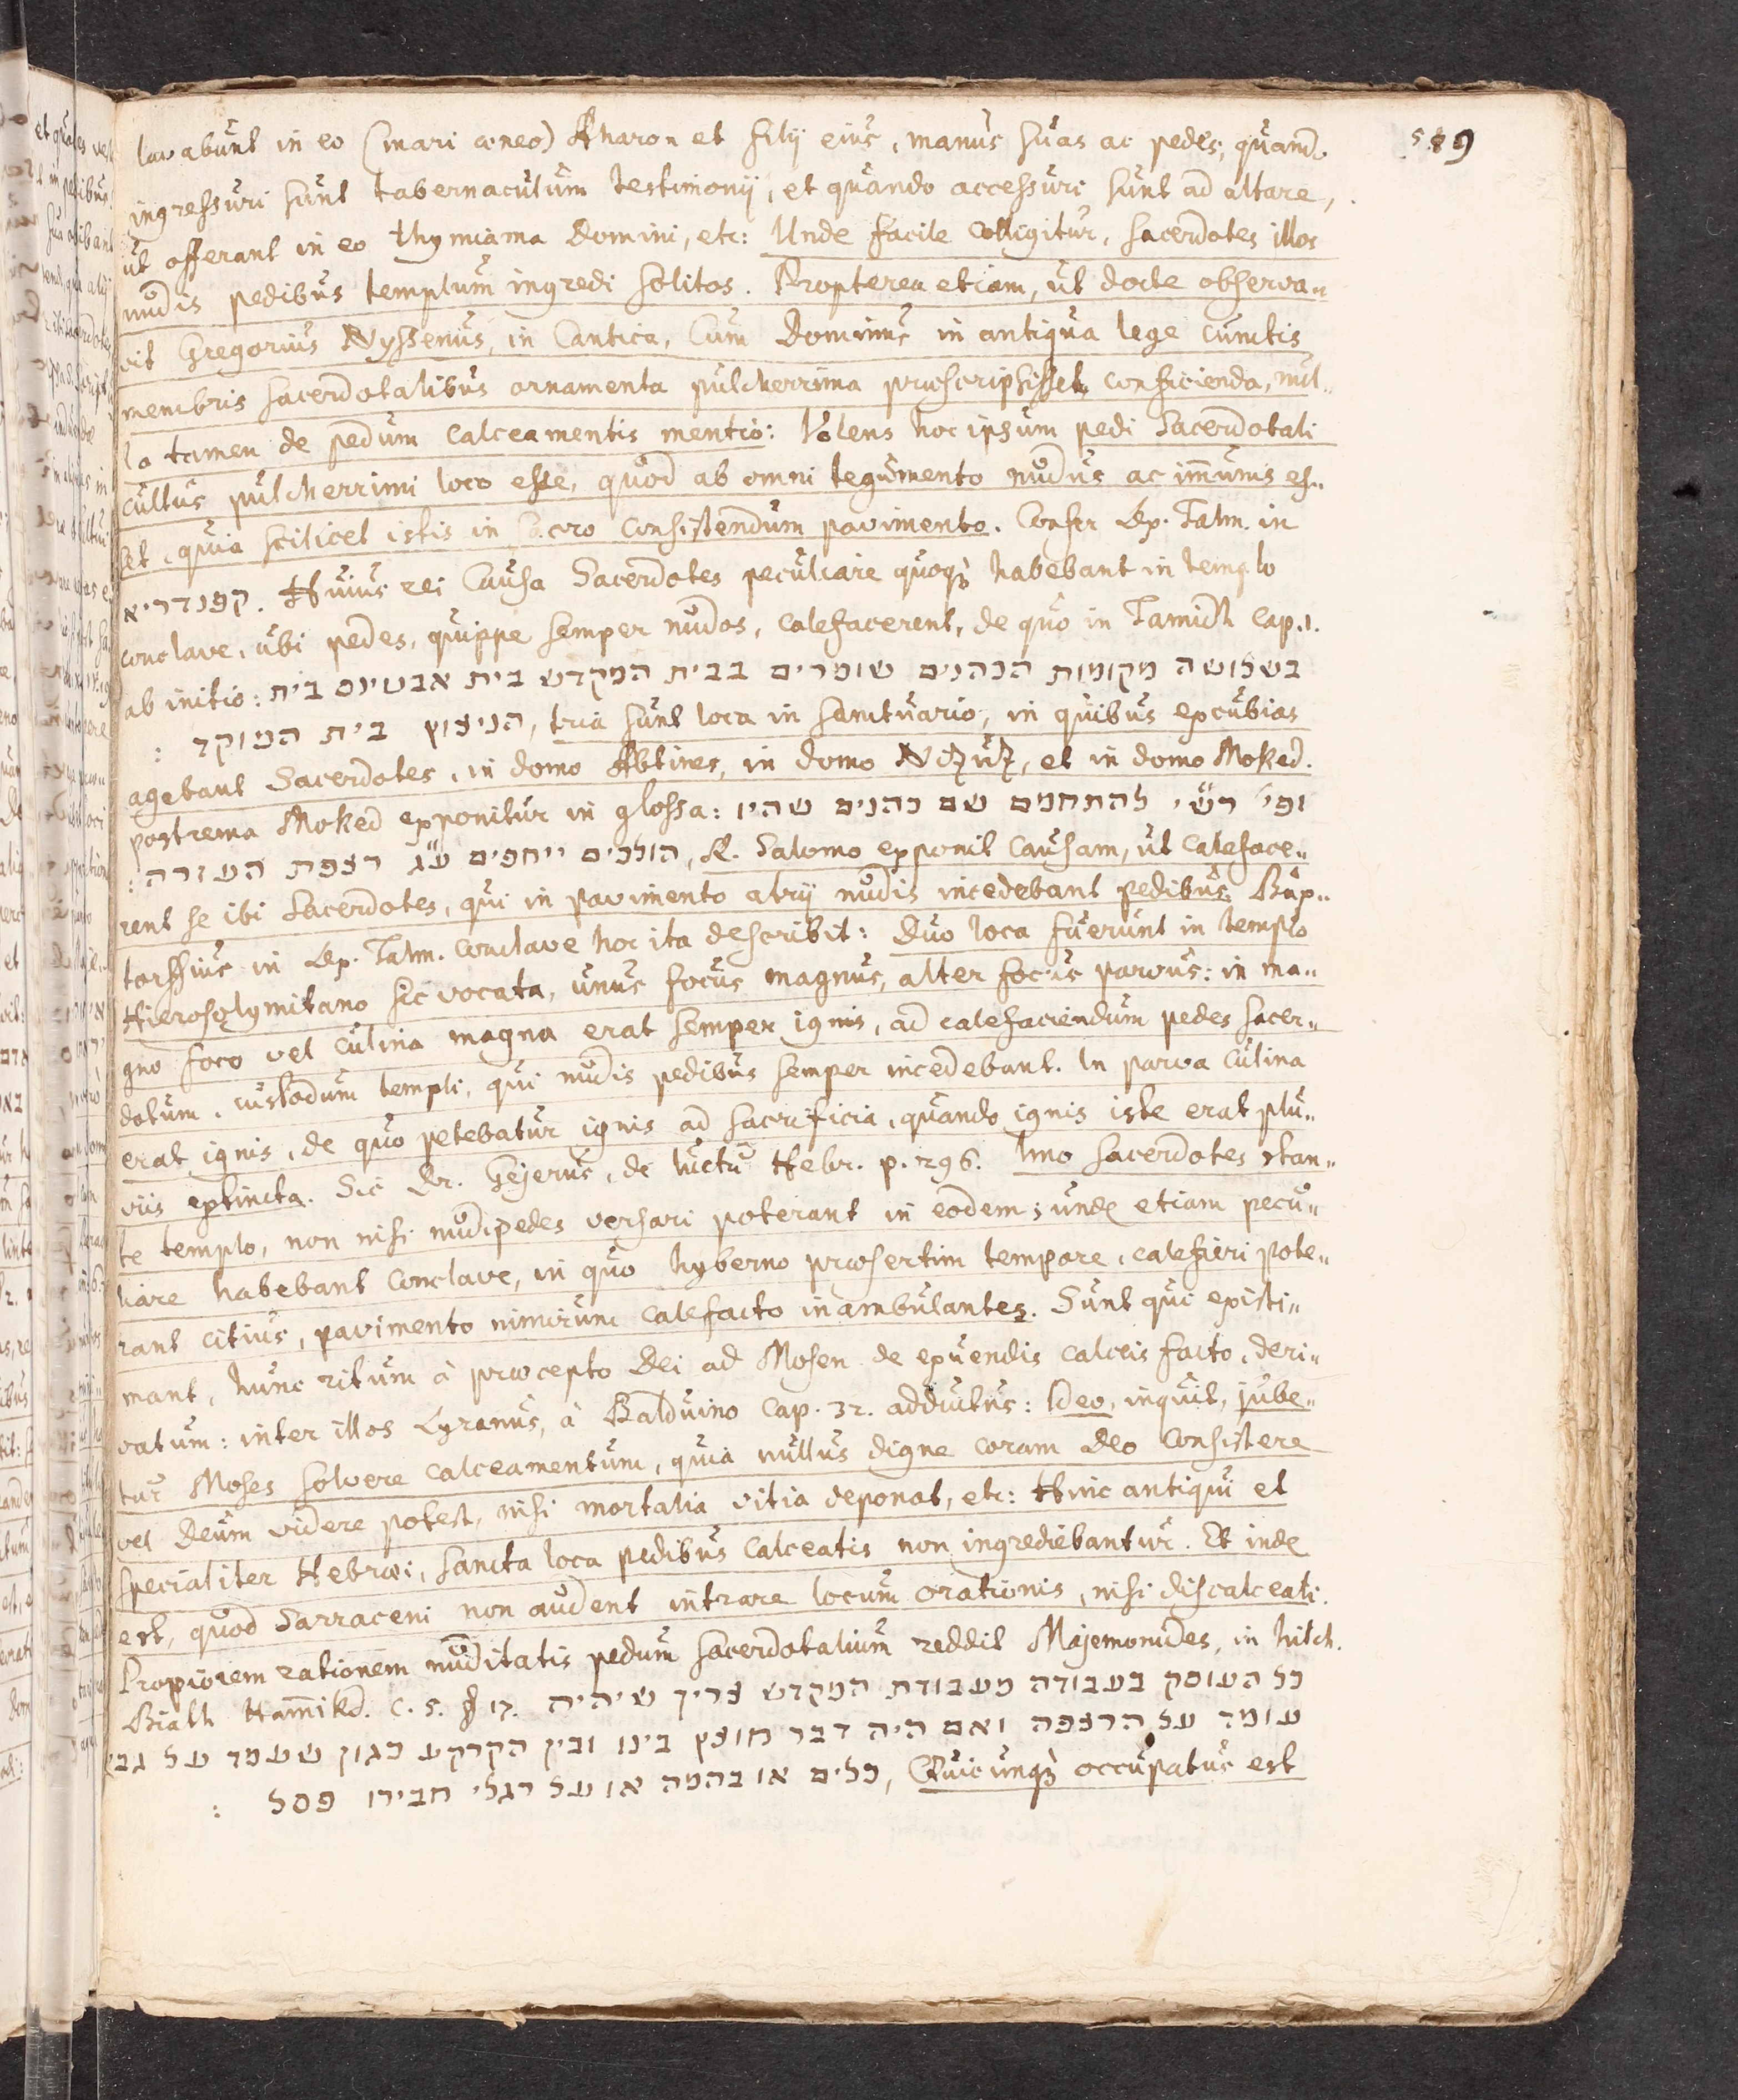 589
lavabunt in eo (mari æneo) Aharon et filij eius, manus suas ac pedes, quand.
ingressuri sunt tabernaculum testimonij, et quando accessuri sunt ad altare,
ut offerant in eo thymiama Domini, etc: Unde facile colligitur, sacerdotes illos
nudis pedibus templum ingredi solitos. Propterea etiam, ut docte observa„
vit Gregorius Nyssenus, in Cantica, Cum Dominus in antiqua lege cunctis
membris sacerdotalibus ornamenta pulcherrima præscripsisset conficienda, nul„
la tamen de pedum calceamentis mentio: Volens hoc ipsum pedi Sacerdotali
cultus pulcherrimi loco esse, quod ab omni tegumento nudus ac im̄unis es„
set, quia scilicet istis in sacro consistendum pavimento. Confer Lex. Talm. in
קפנדריא. Huius rei Causa Sacerdotes peculiare quoqꝫ habebant in templo
conclave, ubi pedes, quippe semper nudos, calefacerent, de quo in Tamidh Cap. 1.
ab initio: בשלושה מקומות הכהנים שומרים בבית המקדש בית אבטינס בית
הניצוץ בית המוקד :, tria sunt loca in sanctuario, in quibus excubias
agebant Sacerdotes, in domo Abtines, in domo Nizuz, et in domo Moked.
postrema Moked exponitur in glossa: ופי׳ רש״י להתחמם שם כהנים שהיו
הולכים יחפים ע״ג רצפת העזרה :, R. Salomo exponit causam, ut caleface„
rent se ibi Sacerdotes, qui in pavimento atrij nudis incedebant pedibus. Bux„
torffius in Lex. Talm. conclave hoc ita describit: Duo loca fuerunt in templo
Hierosolymitano sic vocata, unus focus magnus, alter focus parvus: in ma„
gno foco vel culina magna erat semper ignis, ad calefaciendum pedes sacer„
dotum, custodum templi, qui nudis pedibus semper incedebant. In parva culina
erat ignis, de quo petebatur ignis ad sacrificia, quando ignis iste erat plu„
viis extincta. Sic Dr. Gejerus, de luctu Hebr. p. 296. Imo sacerdotes stan„
te templo, non nisi nudipedes versari poterant in eodem; unde etiam pecu„
liare habebant conclave, in quo hyberno præsertim tempore, calefieri pote„
rant citius, pavimento nimirum calefacto inambulantes. Sunt qui existi„
mant, hunc ritum à præcepto Dei ad Mosen de exuendis calceis facto, deri„
vatum: inter illos Lyranus, à Balduino Cap. 32. adductus: Ideo, inquit, jube„
tur Moses solvere calceamentum, quia nullus digne coram Deo consistere
vel Deum videre potest, nisi mortalia vitia deponat, etc: Hinc antiqui et
specialiter Hebræi, sancta loca pedibus calceatis non ingrediebantur. Et inde
est, quod Sarraceni non audent intrare locum orationis, nisi discalceati.
Propiorem rationem nuditatis pedum sacerdotalium reddit Majemonides, in hilch.
Biath Ham̄ikd. C. 5. § 17. כל העוסק בעבודה מעבודת המקדש צריך שיהיה
עומד על הרצפה ואם היה דבר חוצץ בינו ובין הקרקע כגון שעמד על גבי
כלים או בהמה או על רגלי חבירו פסל :, Quicunqꝫ occupatus est